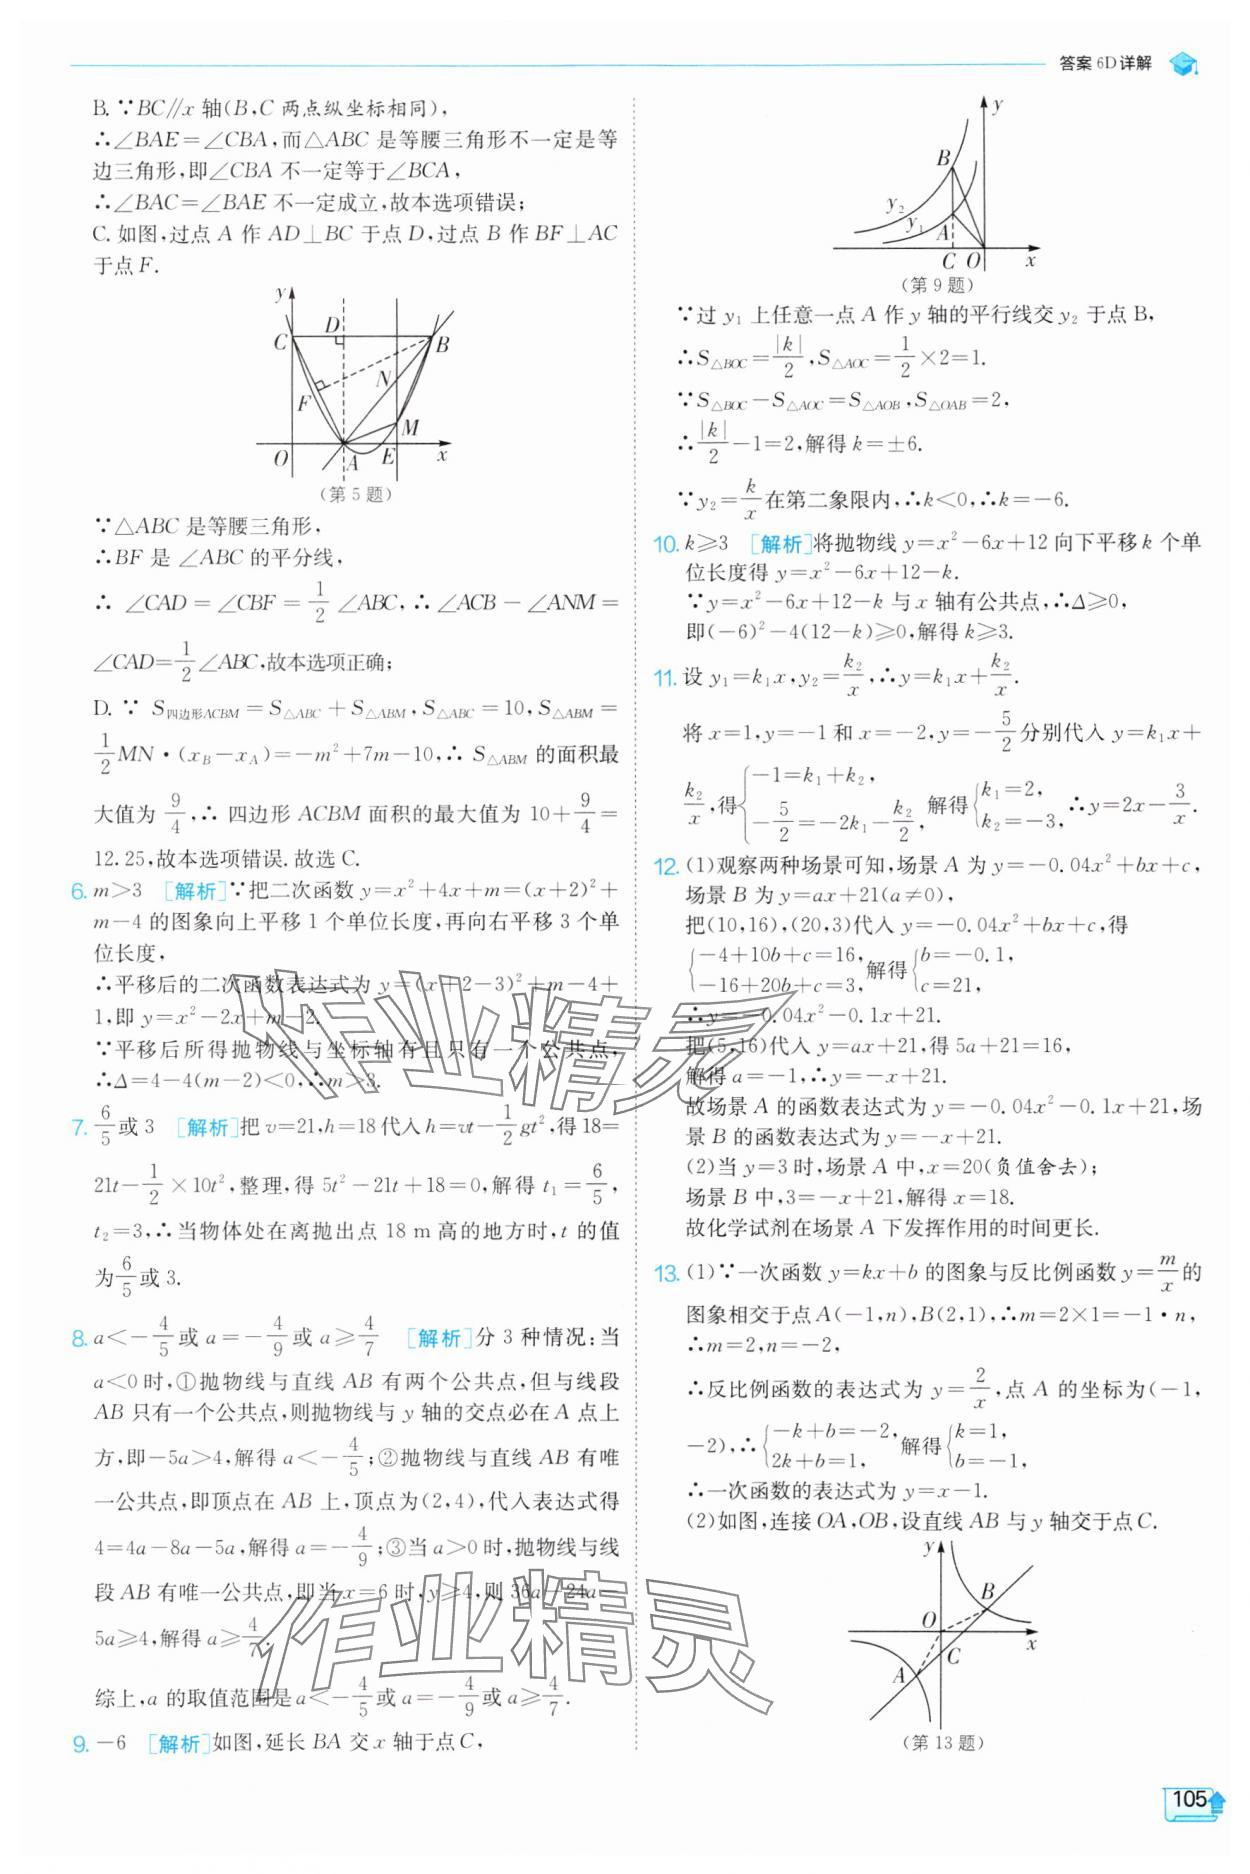 答案 6D 详解
B. ∵BC∥x 轴(B,C 两点纵坐标相同),
∴∠BAE=∠CBA,而△ABC 是等腰三角形不一定是等
边三角形,即∠CBA 不一定等于∠BCA,
∴∠BAC=∠BAE 不一定成立,故本选项错误;
C. 如图,过点 A 作 AD⊥BC 于点 D,过点 B 作 BF⊥AC
于点 F.
y
C D B
N
F
M
O A E x
(第 5 题)
∵△ABC 是等腰三角形,
∴BF 是 ∠ABC 的平分线,
∴ ∠CAD = ∠CBF = 1/2 ∠ABC,∴ ∠ACB − ∠ANM =
∠CAD=1/2∠ABC,故本选项正确;
D. ∵ S四边形ACBM = S△ABC + S△ABM, S△ABC = 10, S△ABM =
1/2 MN·(x_B−x_A)=−m²+7m−10,∴ S△ABM 的面积最
大值为 9/4,∴ 四边形 ACBM 面积的最大值为 10+9/4=
12.25,故本选项错误. 故选 C.
6. m>3 [解析]∵把二次函数 y=x²+4x+m=(x+2)²+
m−4 的图象向上平移 1 个单位长度,再向右平移 3 个单
位长度,
∴平移后的二次函数表达式为 y=(x+2−3)²+m−4+
1,即 y=x²−2x+m−2.
∵平移后所得抛物线与坐标轴有且只有一个公共点,
∴Δ=4−4(m−2)<0,∴m>3.
7. 6/5或 3 [解析]把 v=21,h=18 代入 h=vt−1/2gt²,得 18=
21t−1/2×10t²,整理,得 5t²−21t+18=0,解得 t₁=6/5,
t₂=3,∴当物体处在离抛出点 18 m 高的地方时,t 的值
为6/5或 3.
8. a<−4/5或 a=−4/9或 a≥4/7 [解析]分 3 种情况:当
a<0 时,①抛物线与直线 AB 有两个公共点,但与线段
AB 只有一个公共点,则抛物线与 y 轴的交点必在 A 点上
方,即−5a>4,解得 a<−4/5;②抛物线与直线 AB 有唯
一公共点,即顶点在 AB 上,顶点为(2,4),代入表达式得
4=4a−8a−5a,解得 a=−4/9;③当 a>0 时,抛物线与线
段 AB 有唯一公共点,即当 x=6 时,y≥4,则 36a−24a−
5a≥4,解得 a≥4/7.
综上,a 的取值范围是 a<−4/5或 a=−4/9或 a≥4/7.
9. −6 [解析]如图,延长 BA 交 x 轴于点 C,
y
B
y₂
y₁ A
C O x
(第 9 题)
∵过 y₁ 上任意一点 A 作 y 轴的平行线交 y₂ 于点 B,
∴S△BOC=|k|/2,S△AOC=1/2×2=1.
∵S△BOC−S△AOC=S△AOB,S△OAB=2,
∴|k|/2−1=2,解得 k=±6.
∵y₂=k/x在第二象限内,∴k<0,∴k=−6.
10. k≥3 [解析]将抛物线 y=x²−6x+12 向下平移 k 个单
位长度得 y=x²−6x+12−k.
∵y=x²−6x+12−k 与 x 轴有公共点,∴Δ≥0,
即(−6)²−4(12−k)≥0,解得 k≥3.
11. 设 y₁=k₁x,y₂=k₂/x,∴y=k₁x+k₂/x.
将 x=1,y=−1 和 x=−2,y=−5/2分别代入 y=k₁x+
k₂/x,得{−1=k₁+k₂, −5/2=−2k₁−k₂/2, 解得{k₁=2, k₂=−3, ∴y=2x−3/x.
12. (1)观察两种场景可知,场景 A 为 y=−0.04x²+bx+c,
场景 B 为 y=ax+21(a≠0),
把(10,16),(20,3)代入 y=−0.04x²+bx+c,得
{−4+10b+c=16, −16+20b+c=3, 解得{b=−0.1, c=21,
∴y=−0.04x²−0.1x+21.
把(5,16)代入 y=ax+21,得 5a+21=16,
解得 a=−1,∴y=−x+21.
故场景 A 的函数表达式为 y=−0.04x²−0.1x+21,场
景 B 的函数表达式为 y=−x+21.
(2)当 y=3 时,场景 A 中,x=20(负值舍去);
场景 B 中,3=−x+21,解得 x=18.
故化学试剂在场景 A 下发挥作用的时间更长.
13. (1)∵一次函数 y=kx+b 的图象与反比例函数 y=m/x的
图象相交于点 A(−1,n),B(2,1),∴m=2×1=−1·n,
∴m=2,n=−2,
∴反比例函数的表达式为 y=2/x,点 A 的坐标为(−1,
−2),∴{−k+b=−2, 2k+b=1, 解得{k=1, b=−1,
∴一次函数的表达式为 y=x−1.
(2)如图,连接 OA,OB,设直线 AB 与 y 轴交于点 C.
y
B
O x
C
A
(第 13 题)
作业精灵
作业精灵
105